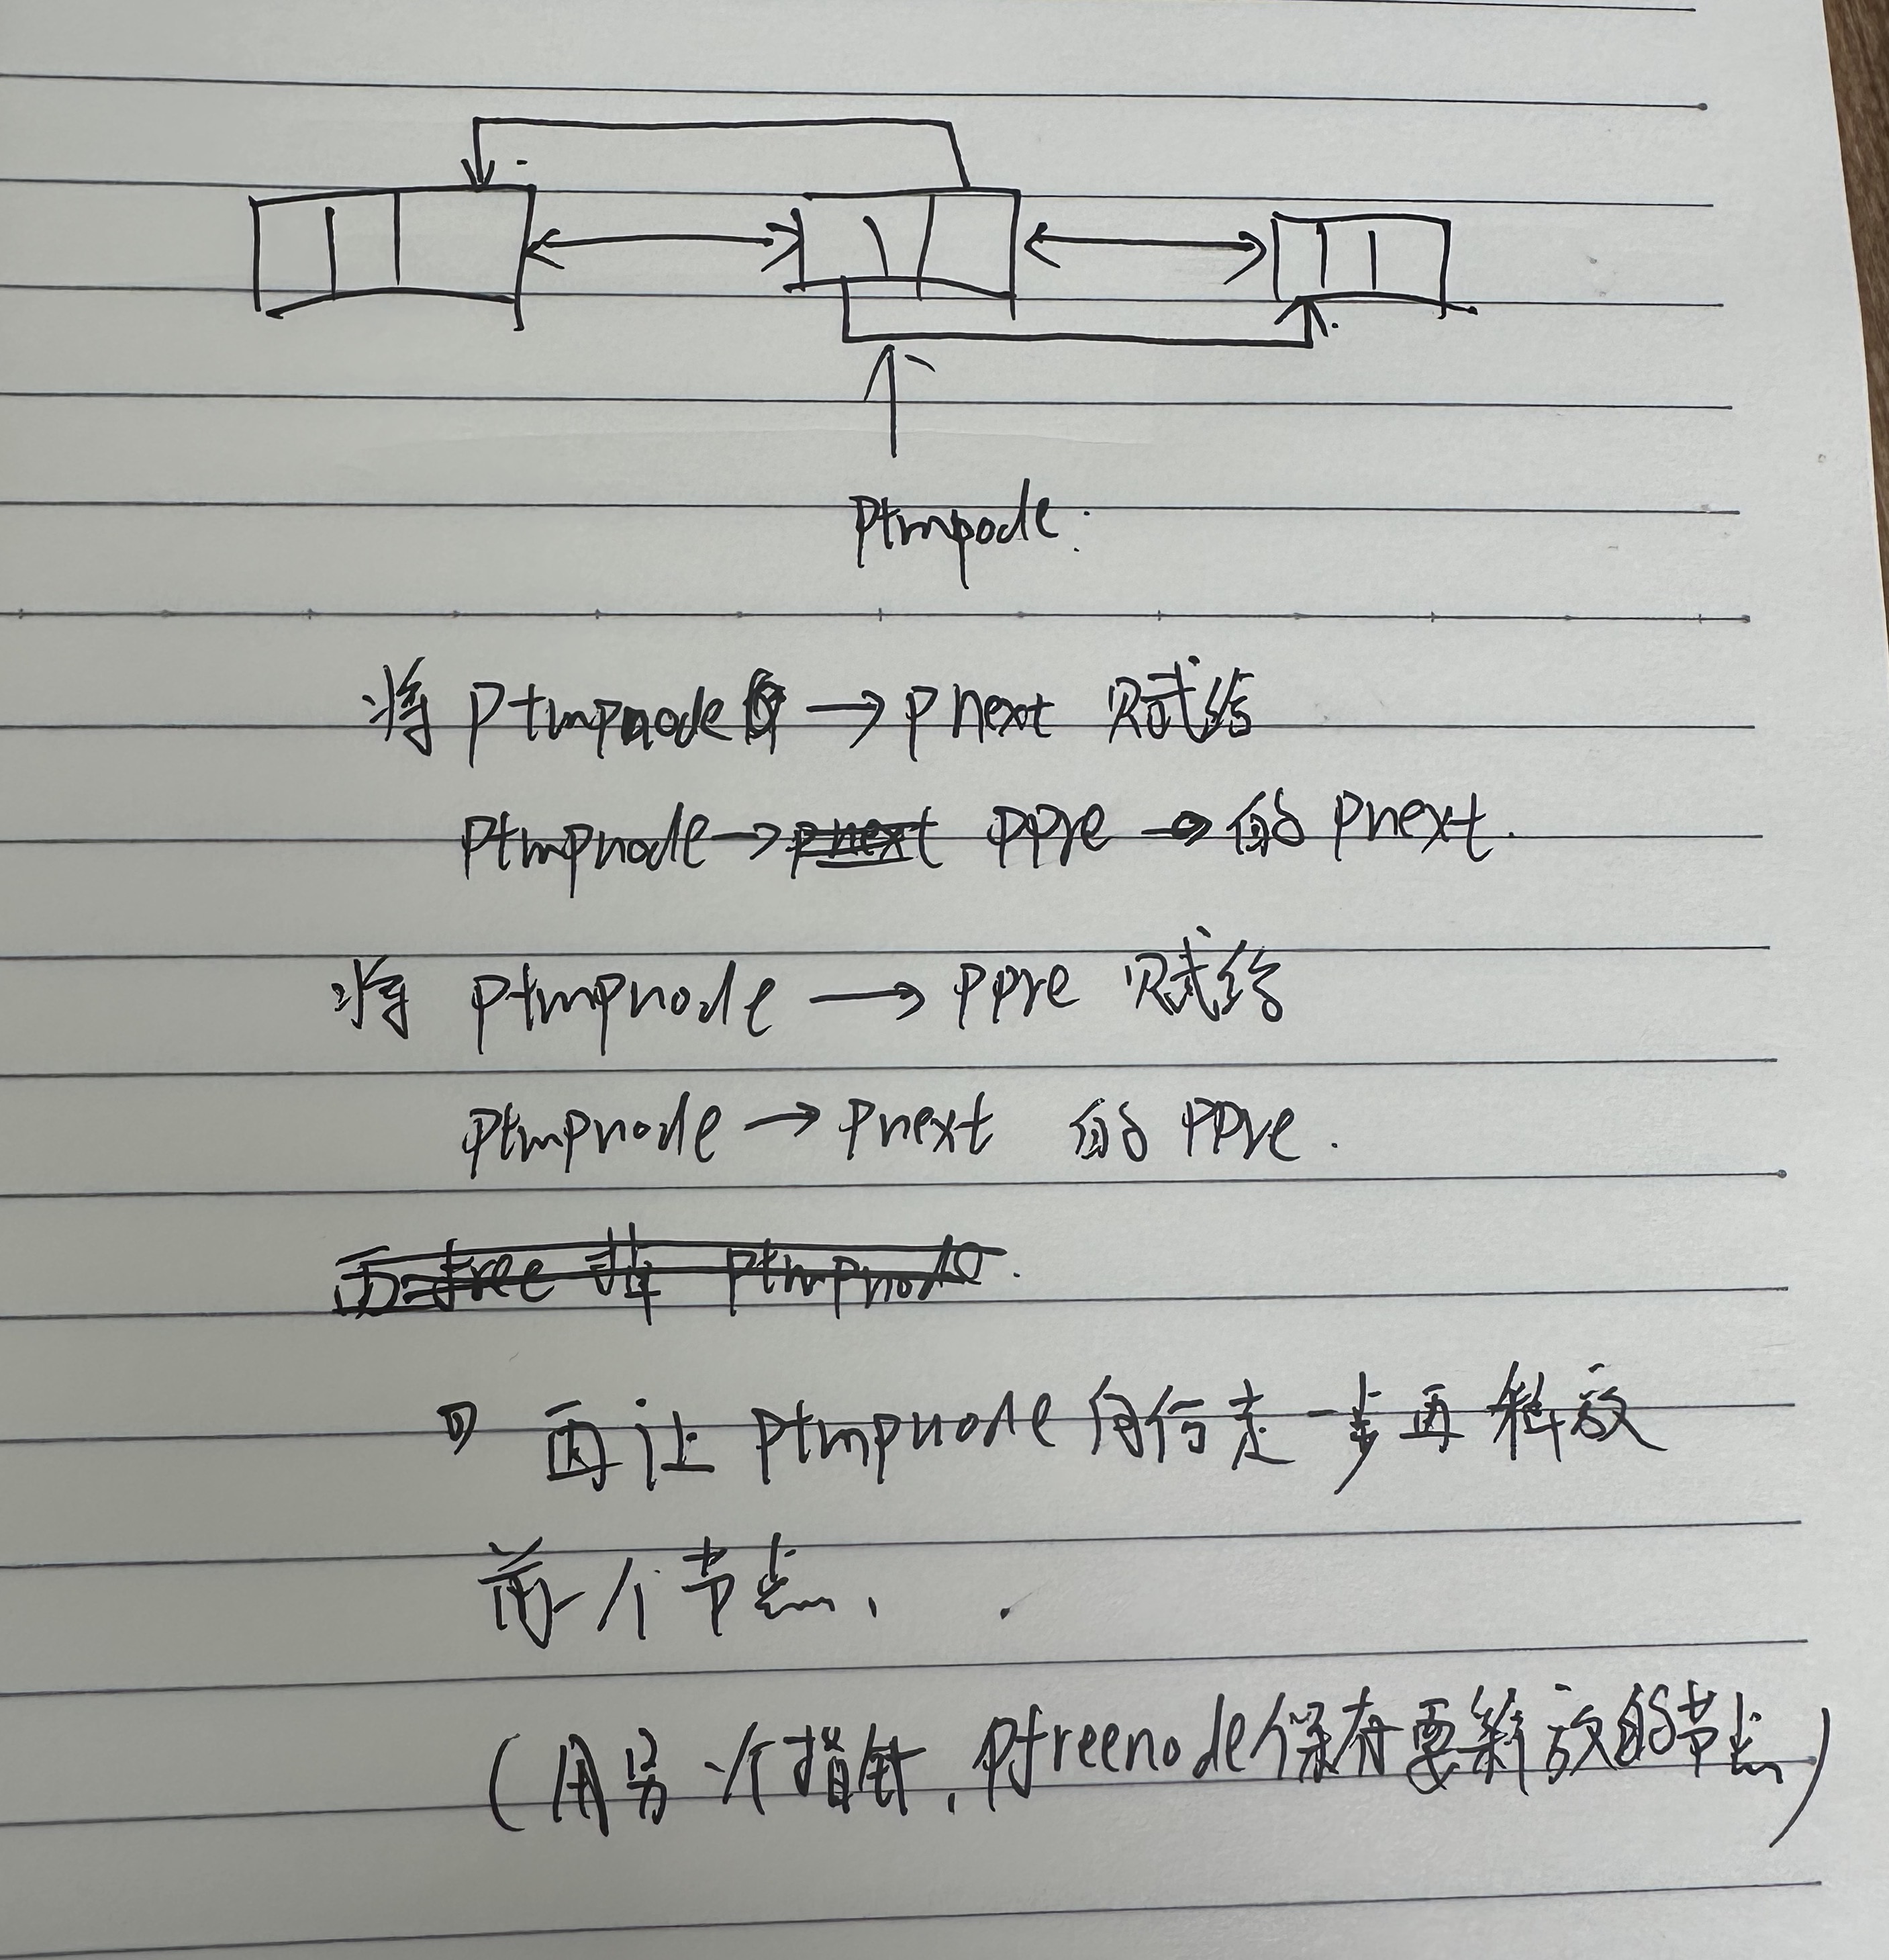 Ptmpode.
将 Ptmpnode → Pnext 赋给
Ptmpnode → ppre → 的 pnext.
将 ptmpnode → ppre 赋给
ptmpnode → pnext 的 ppre.
再free掉 ptmpnode.
再让 ptmpnode 向后走一步再释放
前一个节点、
(用另一个指针, pfreenode保存要释放的节点)